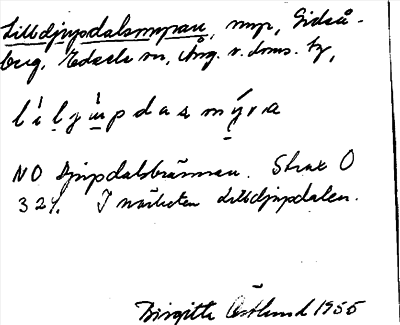 Lilldjupdalsmyran, myr, Gideå-
berg, Edsele sn, Ång. v. doms. by,
l i l j u p d a s m y r a
NO Djupdalsbrännan. Strax O
324. I närheten Lilldjupdalen.
Birgitta Östlund 1955